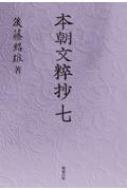 本朝文粋抄 七
後藤昭雄 著
勉誠出版